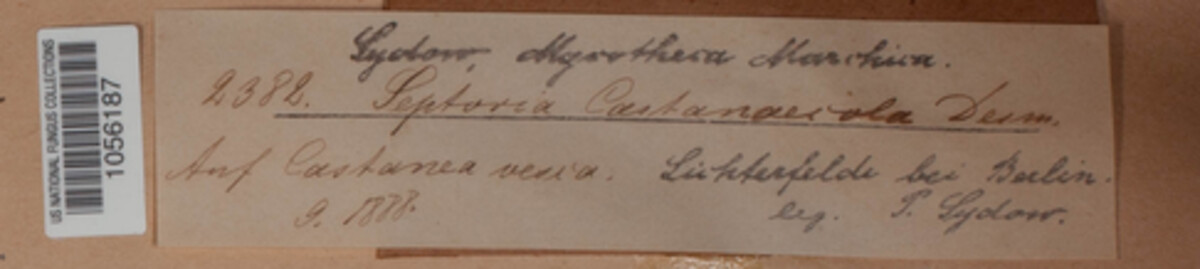 US NATIONAL FUNGUS COLLECTIONS
1056187
Sydow, Mycotheca Marchica.
2382. Septoria Castanaecola Desm.
Auf Castanea vesca. Lichterfelde bei Berlin.
9. 1888. leg. P. Sydow.